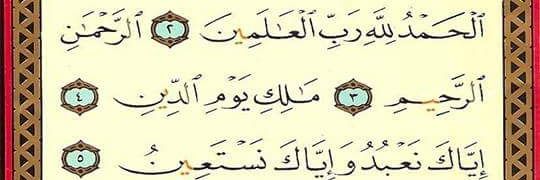 اَ۬لْحَمْدُ لِلهِ رَبِّ اِ۬لْعَٰلَمِينَ ٢ اَ۬لرَّحْمَٰنِ
اِ۬لرَّحِيمِ ٣ مَلِكِ يَوْمِ اِ۬لدِّينِ ٤
إِيَّاكَ نَعْبُدُ وَإِيَّاكَ نَسْتَعِينُ ٥